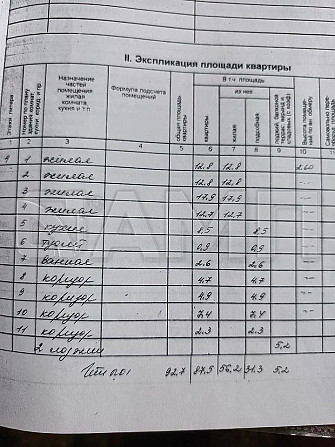 II. Экспликация площади квартиры
Этажи литера
Номер по плану здания комнат, кухни, корид. и пр.
Назначение частей помещения жилая комната, кухня и т.п.
Формула подсчета помещений
общая площадь квартиры
В т.ч. площадь
квартиры
из нее
жилая
подсобная
лоджий, балконов, террас, веранд и кладовых (с коэф.)
Высота помещений по вн. обмеру
1 2 3 4 5 6 7 8 9 10 11
9 1 жилая 12.8 12.8 2.60
2 жилая 12.8 12.8
3 жилая 17.9 17.9
4 жилая 12.7 12.7
5 кухня 8,5 8,5
6 туалет 0,9 0,9
7 ванная 2.6 2.6
8 коридор 4.7 4.7
9 коридор 4.9 4.9
10 коридор 7,4 7,4
11 коридор 2.3 2.3
2 лоджии 5,2
Итого: 92,7 87,5 56,2 31,3 5,2